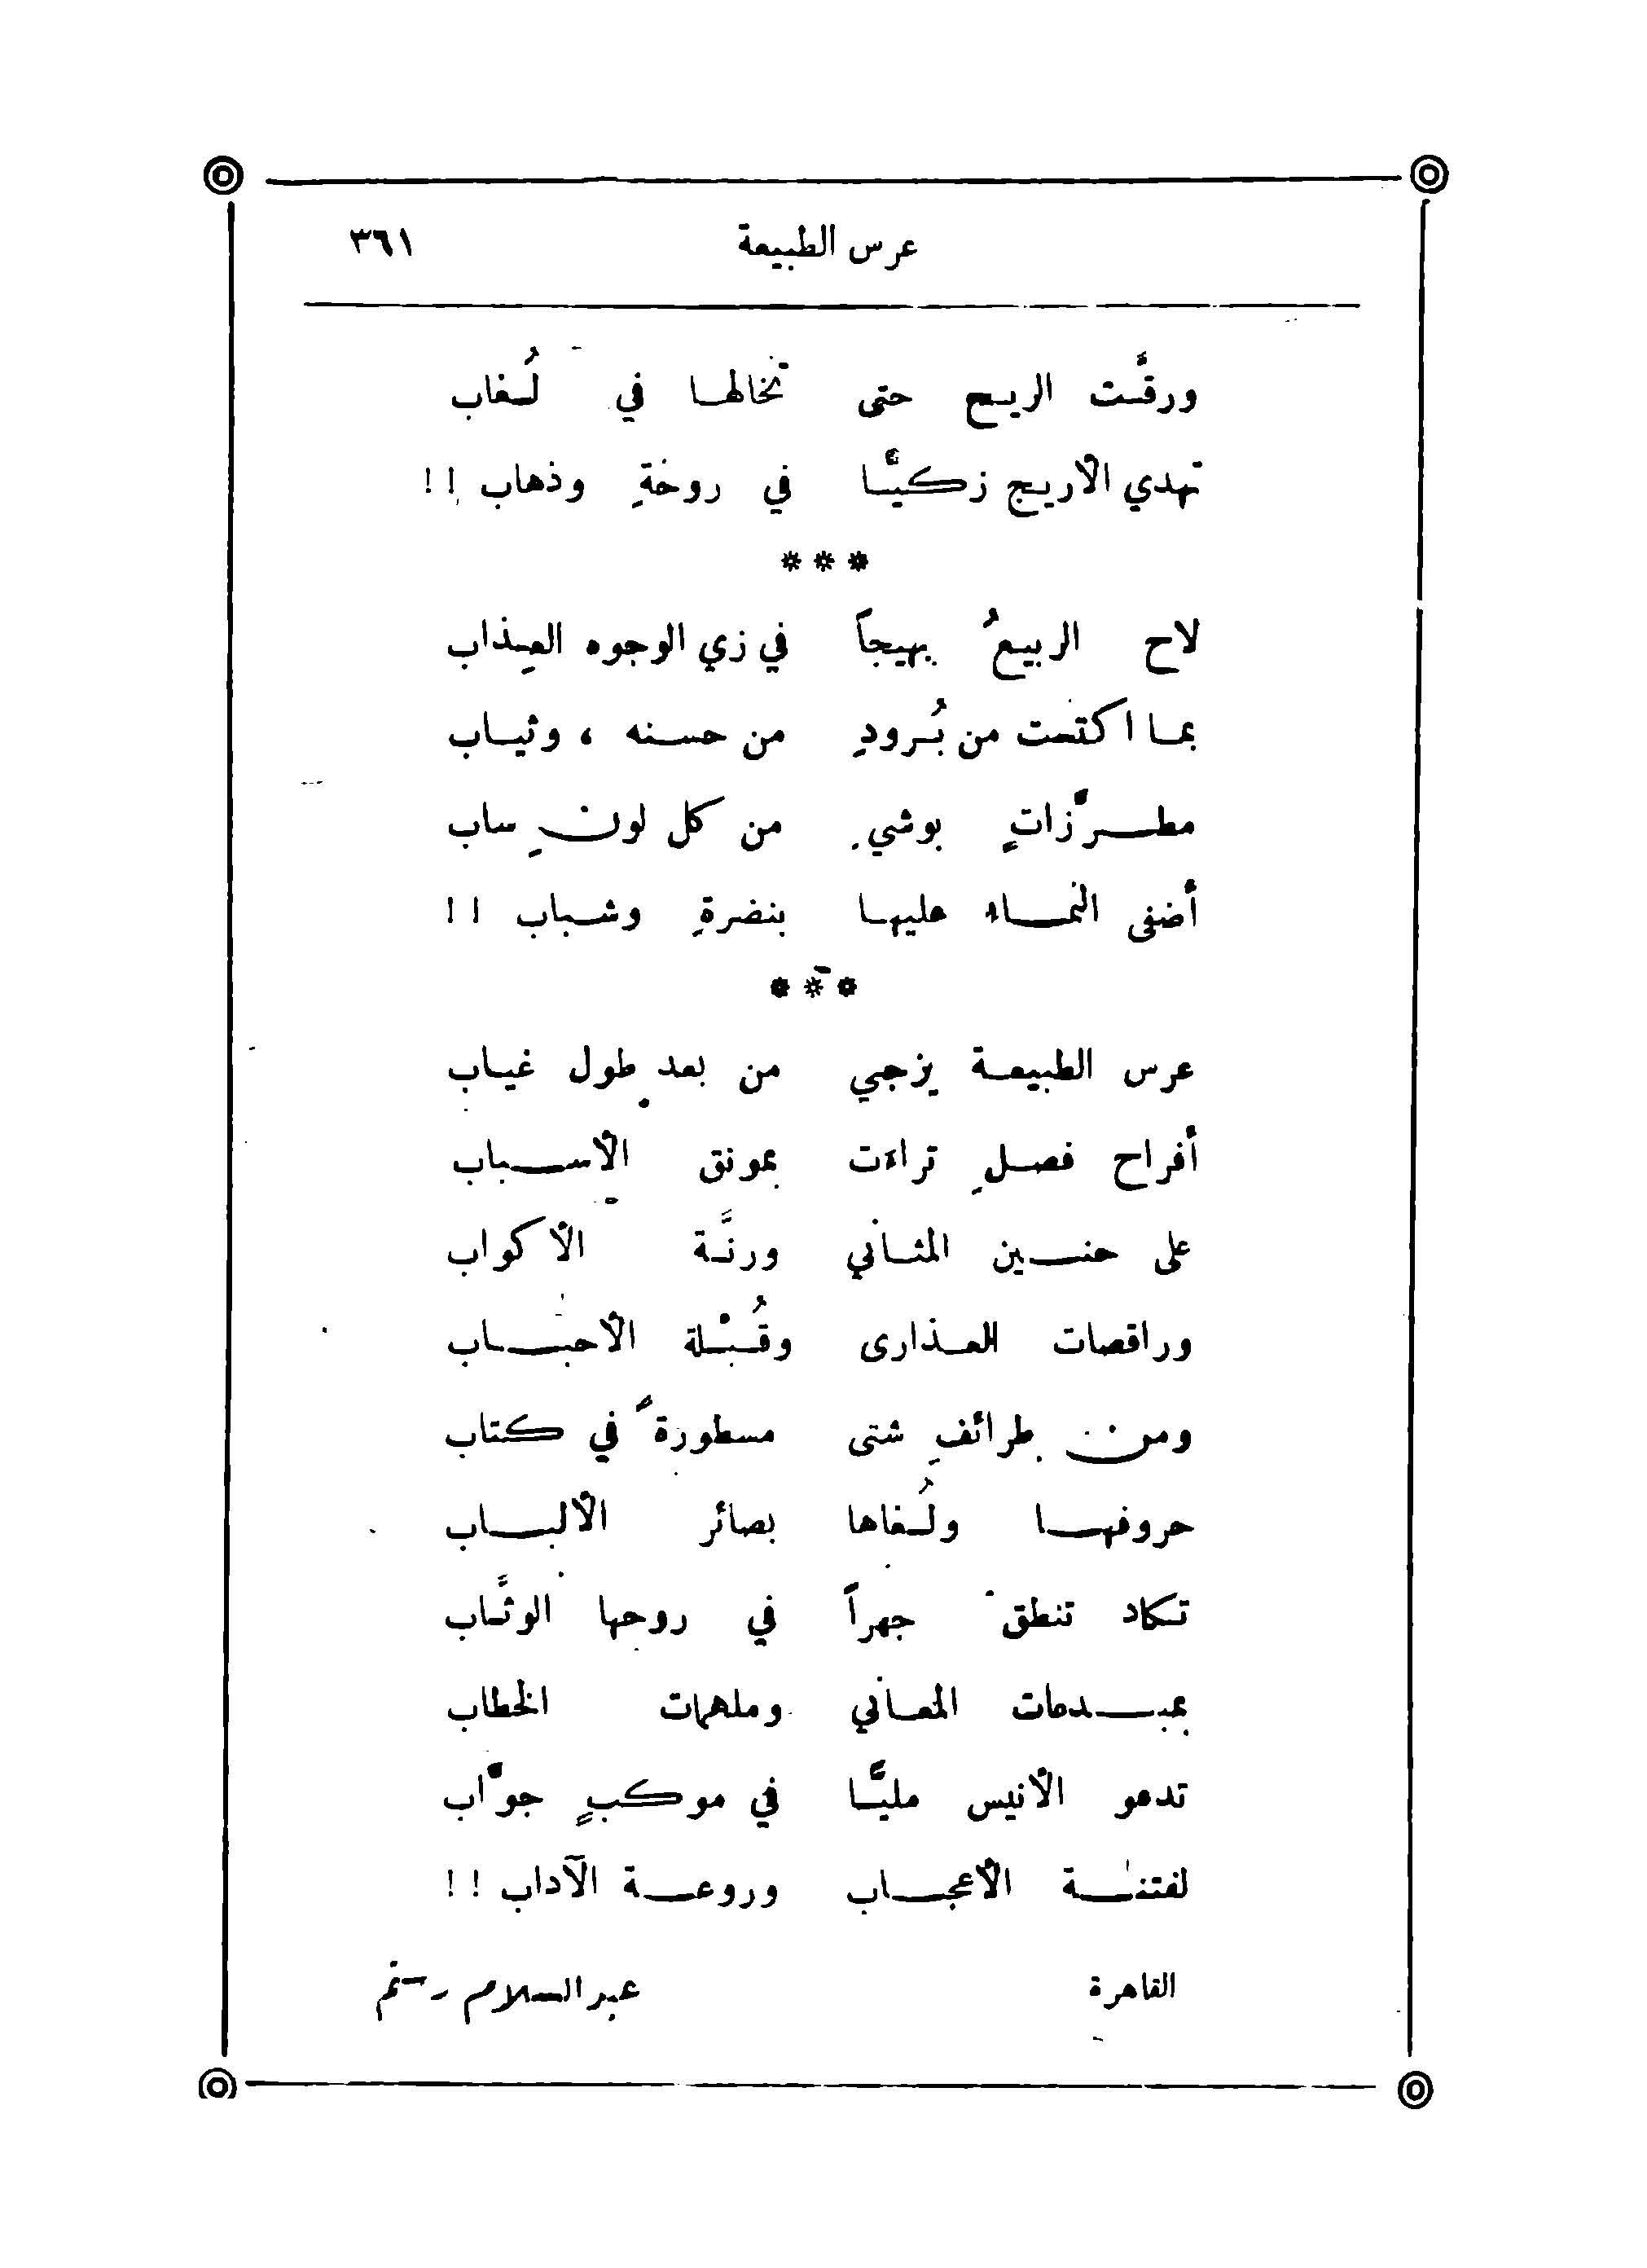 عرس الطبيعة ٣٦١
ورقَّت الريح حتى تخالها في لُغاب
تهدي الأريج زكيًّا في روحةٍ وذهاب !!
***
لاح الربيعُ بهيجاً في زي الوجوه العِذاب
بما اكتست من بُرودٍ من حسنه ، وثياب
مطرَّزاتٍ بوشيٍ من كل لونٍ ساب
أضفى النماء عليها بنضرةٍ وشباب !!
***
عرس الطبيعة يزجي من بعد طول غياب
أفراح فصلٍ تراءت بمونق الأسباب
على حنين المثاني ورنَّة الأكواب
وراقصات العذارى وقُبْلة الأحباب
ومن طرائفٍ شتى مسطورةً في كتاب
حروفها ولُغاها بصائر الألباب
تكاد تنطق جهراً في روحها الوثَّاب
بمبدعات المعاني وملهمات الخطاب
تدعو الأنيس مليًّا في موكبٍ جوَّاب
لفتنة الأعجاب وروعة الآداب !!
القاهرة عبد السلام رستم